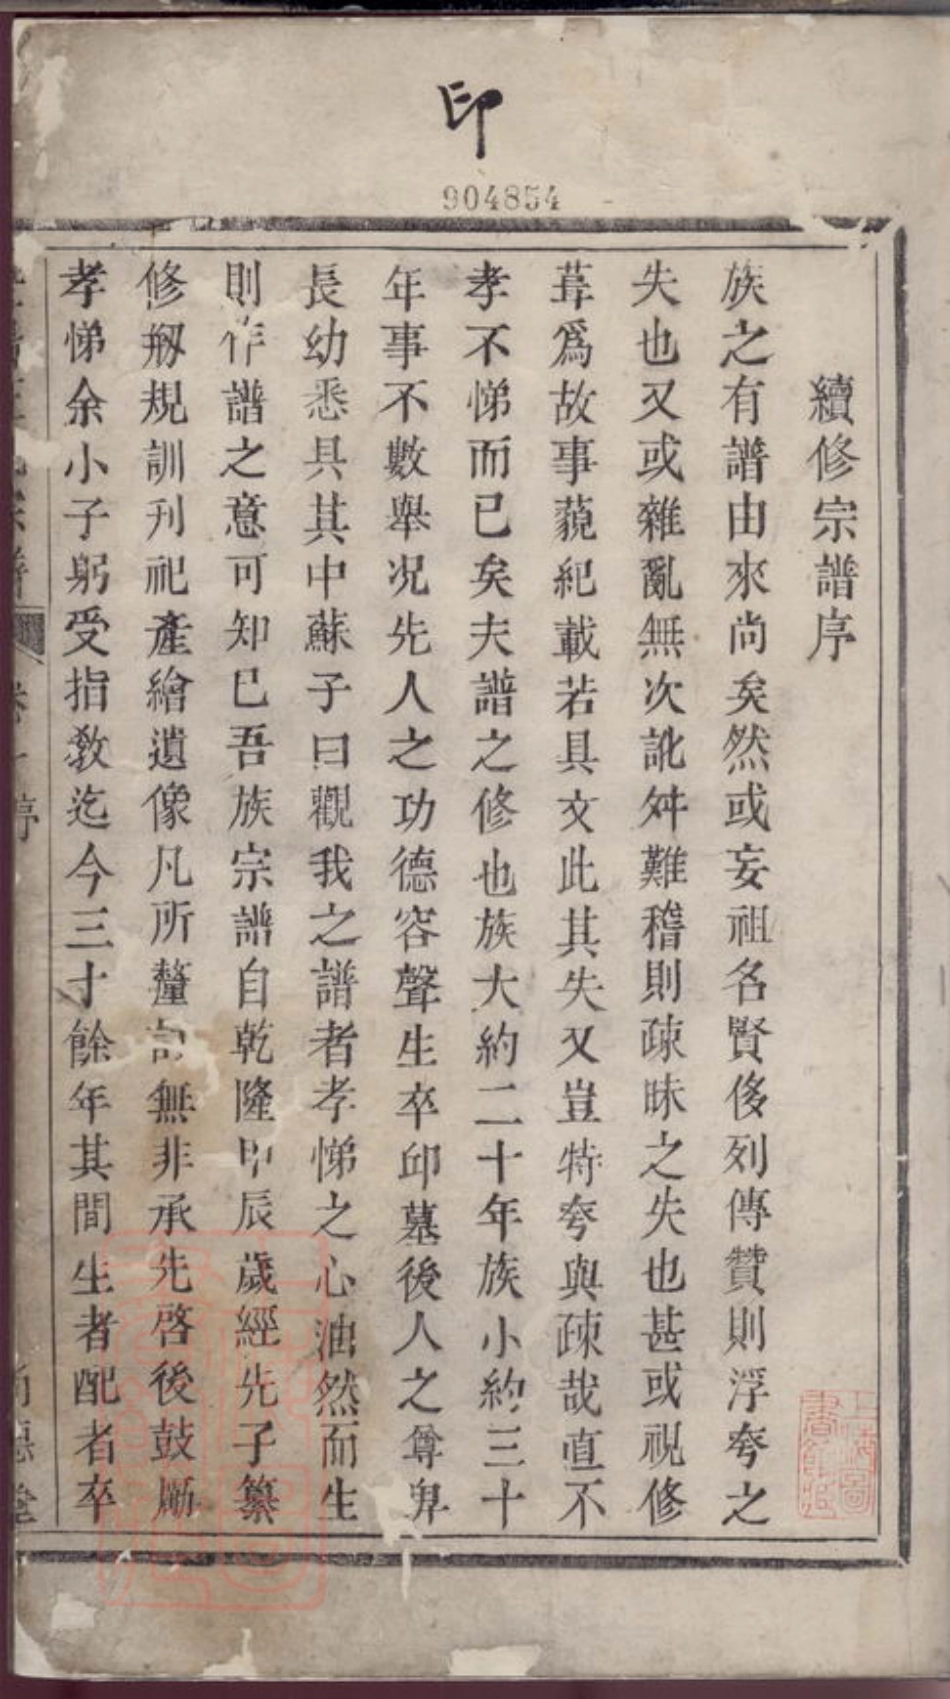 印
904854
續修宗譜序
族之有譜由來尚矣然或妄祖名賢侈列傳贊則浮夸之
失也又或雜亂無次訛舛難稽則疎昧之失也甚或視修
葺爲故事藐紀載若具文此其失又豈特夸與疎哉直不
孝不悌而已矣夫譜之修也族大約二十年族小約三十
年事不數舉况先人之功德容聲生卒邱墓後人之尊卑
長幼悉具其中蘇子曰觀我之譜者孝悌之心油然而生
則作譜之意可知巳吾族宗譜自乾隆甲辰歲經先子纂
修剏規訓刋祀產繪遺像凡所釐無非承先啓後鼓勵
孝悌余小子躬受指教迄今三十餘年其間生者配者卒
宗譜
卷一
德堂
上海圖書館藏